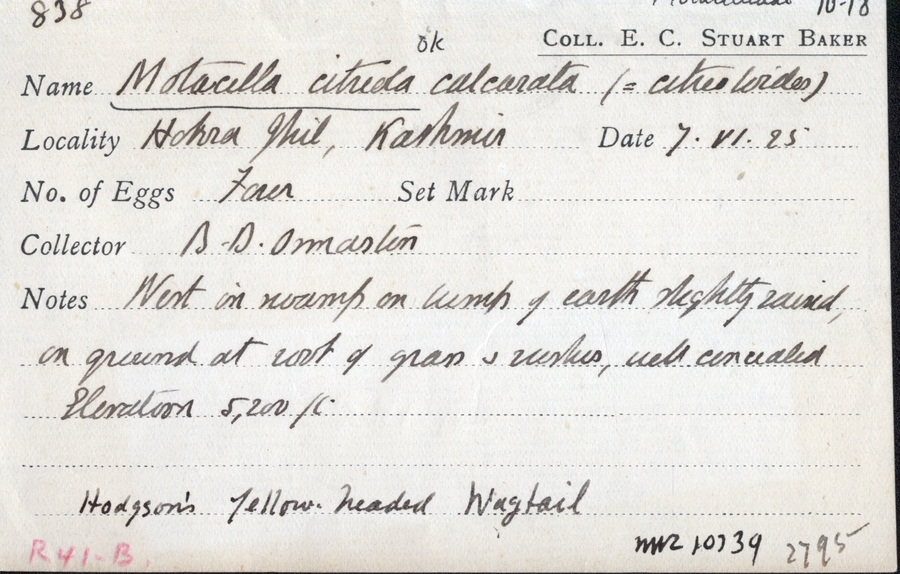 838 10-18
ok
COLL. E. C. STUART BAKER
Name Motacella citreola calcarata (= citreoloides)
Locality Hokra Jhil, Kashmir Date 7. VI. 25
No. of Eggs Four Set Mark
Collector B. B. Osmaston
Notes Nest in swamp on lump of earth slightly raised,
on ground at root of grass & rushes, well concealed
Elevation 5,200 ft.
Hodgson's Yellow-headed Wagtail
R41-B. 10739 2795